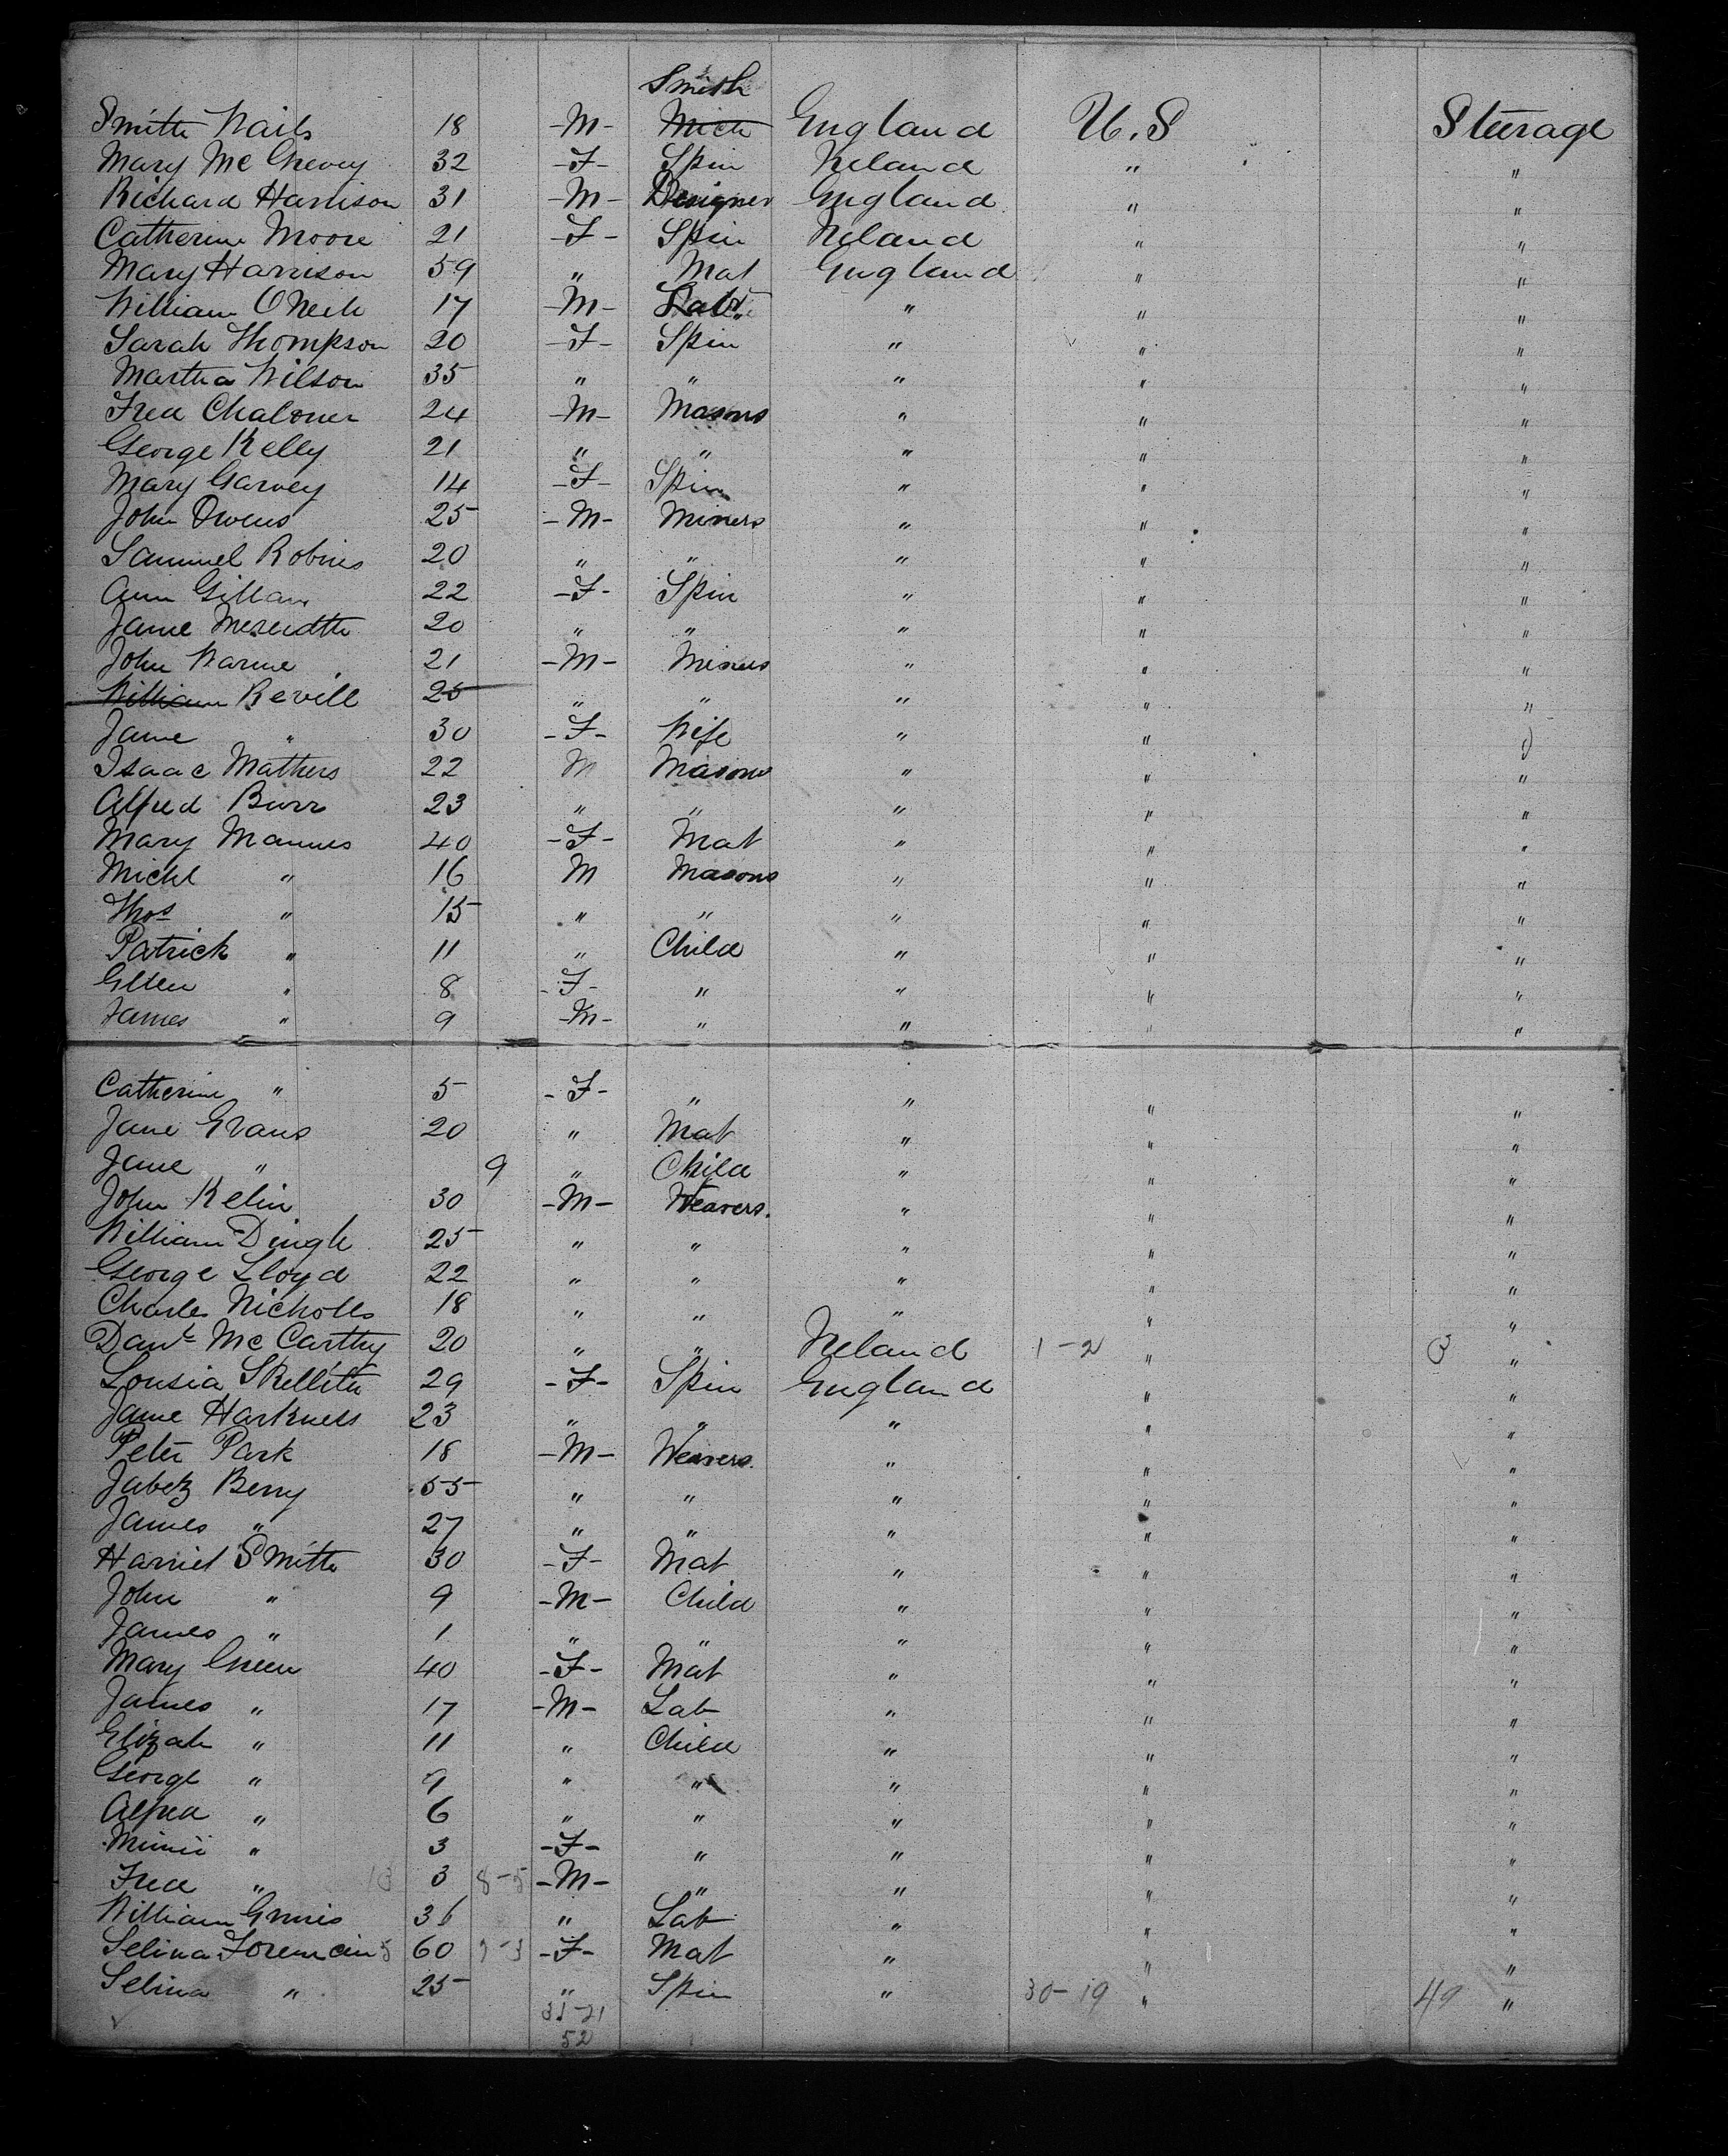 Smith
Smith Nails 18 -M- Mich England U.S Steerage
Mary McGrevey 32 -F- Spin Ireland " "
Richard Harrison 31 -M- Designer England " "
Catherine Moore 21 -F- Spin Ireland " "
Mary Harrison 59 " Mat England " "
William ONeil 17 -M- Lab " " "
Sarah Thompson 20 -F- Spin " " "
Martha Wilson 35 " " " " "
Fred Chaloner 24 -M- Masons " " "
George Kelly 21 " " " " "
Mary Garvey 14 -F- Spin " " "
John Owens 25 -M- Miners " " "
Samuel Robins 20 " " " " "
Ann Gillan 22 -F- Spin " " "
Jane Meredith 20 " " " " "
John Warne 21 -M- Miners " " "
William Revill 25 " " " " "
Jane " 30 -F- Wife " " "
Isaac Mathers 22 M Masons " " "
Alfred Burr 23 " " " " "
Mary Mannes 40 -F- Mat " " "
Michl " 16 M Masons " " "
Thos " 15 " " " " "
Patrick " 11 " Child " " "
Ellen " 8 -F- " " " "
James " 9 -M- " " " "
Catherine " 5 -F- " " " "
Jane Evans 20 " Mat " " "
Jane " 9 " Child " " "
John Kelin 30 -M- Weavers. " " "
William Dingle 25 " " " " "
George Lloyd 22 " " " " "
Charles Nicholls 18 " " " " "
Danl McCarthy 20 " " Ireland 1-2 " 3 "
Lousia Skellith 29 -F- Spin England " "
Jane Harkness 23 " " " " "
Peter Park 18 -M- Weavers. " " "
Jabetz Berry 55 " " " " "
James " 27 " " " " "
Harriet Smith 30 -F- Mat " " "
John " 9 -M- Child " " "
James " 1 " " " " "
Mary Green 40 -F- Mat " " "
James " 17 -M- Lab " " "
Elizah " 11 " Child " " "
George " 9 " " " " "
Alfred " 6 " " " " "
Minnii " 3 -F- " " " "
Fred " 13 3 8-5 -M- " " " "
William 36 " Lab " " "
Selina Foreman 5 60 -F- Mat " " "
Selina " 25 " Spin " 30-19 " 49 "
31-21
52